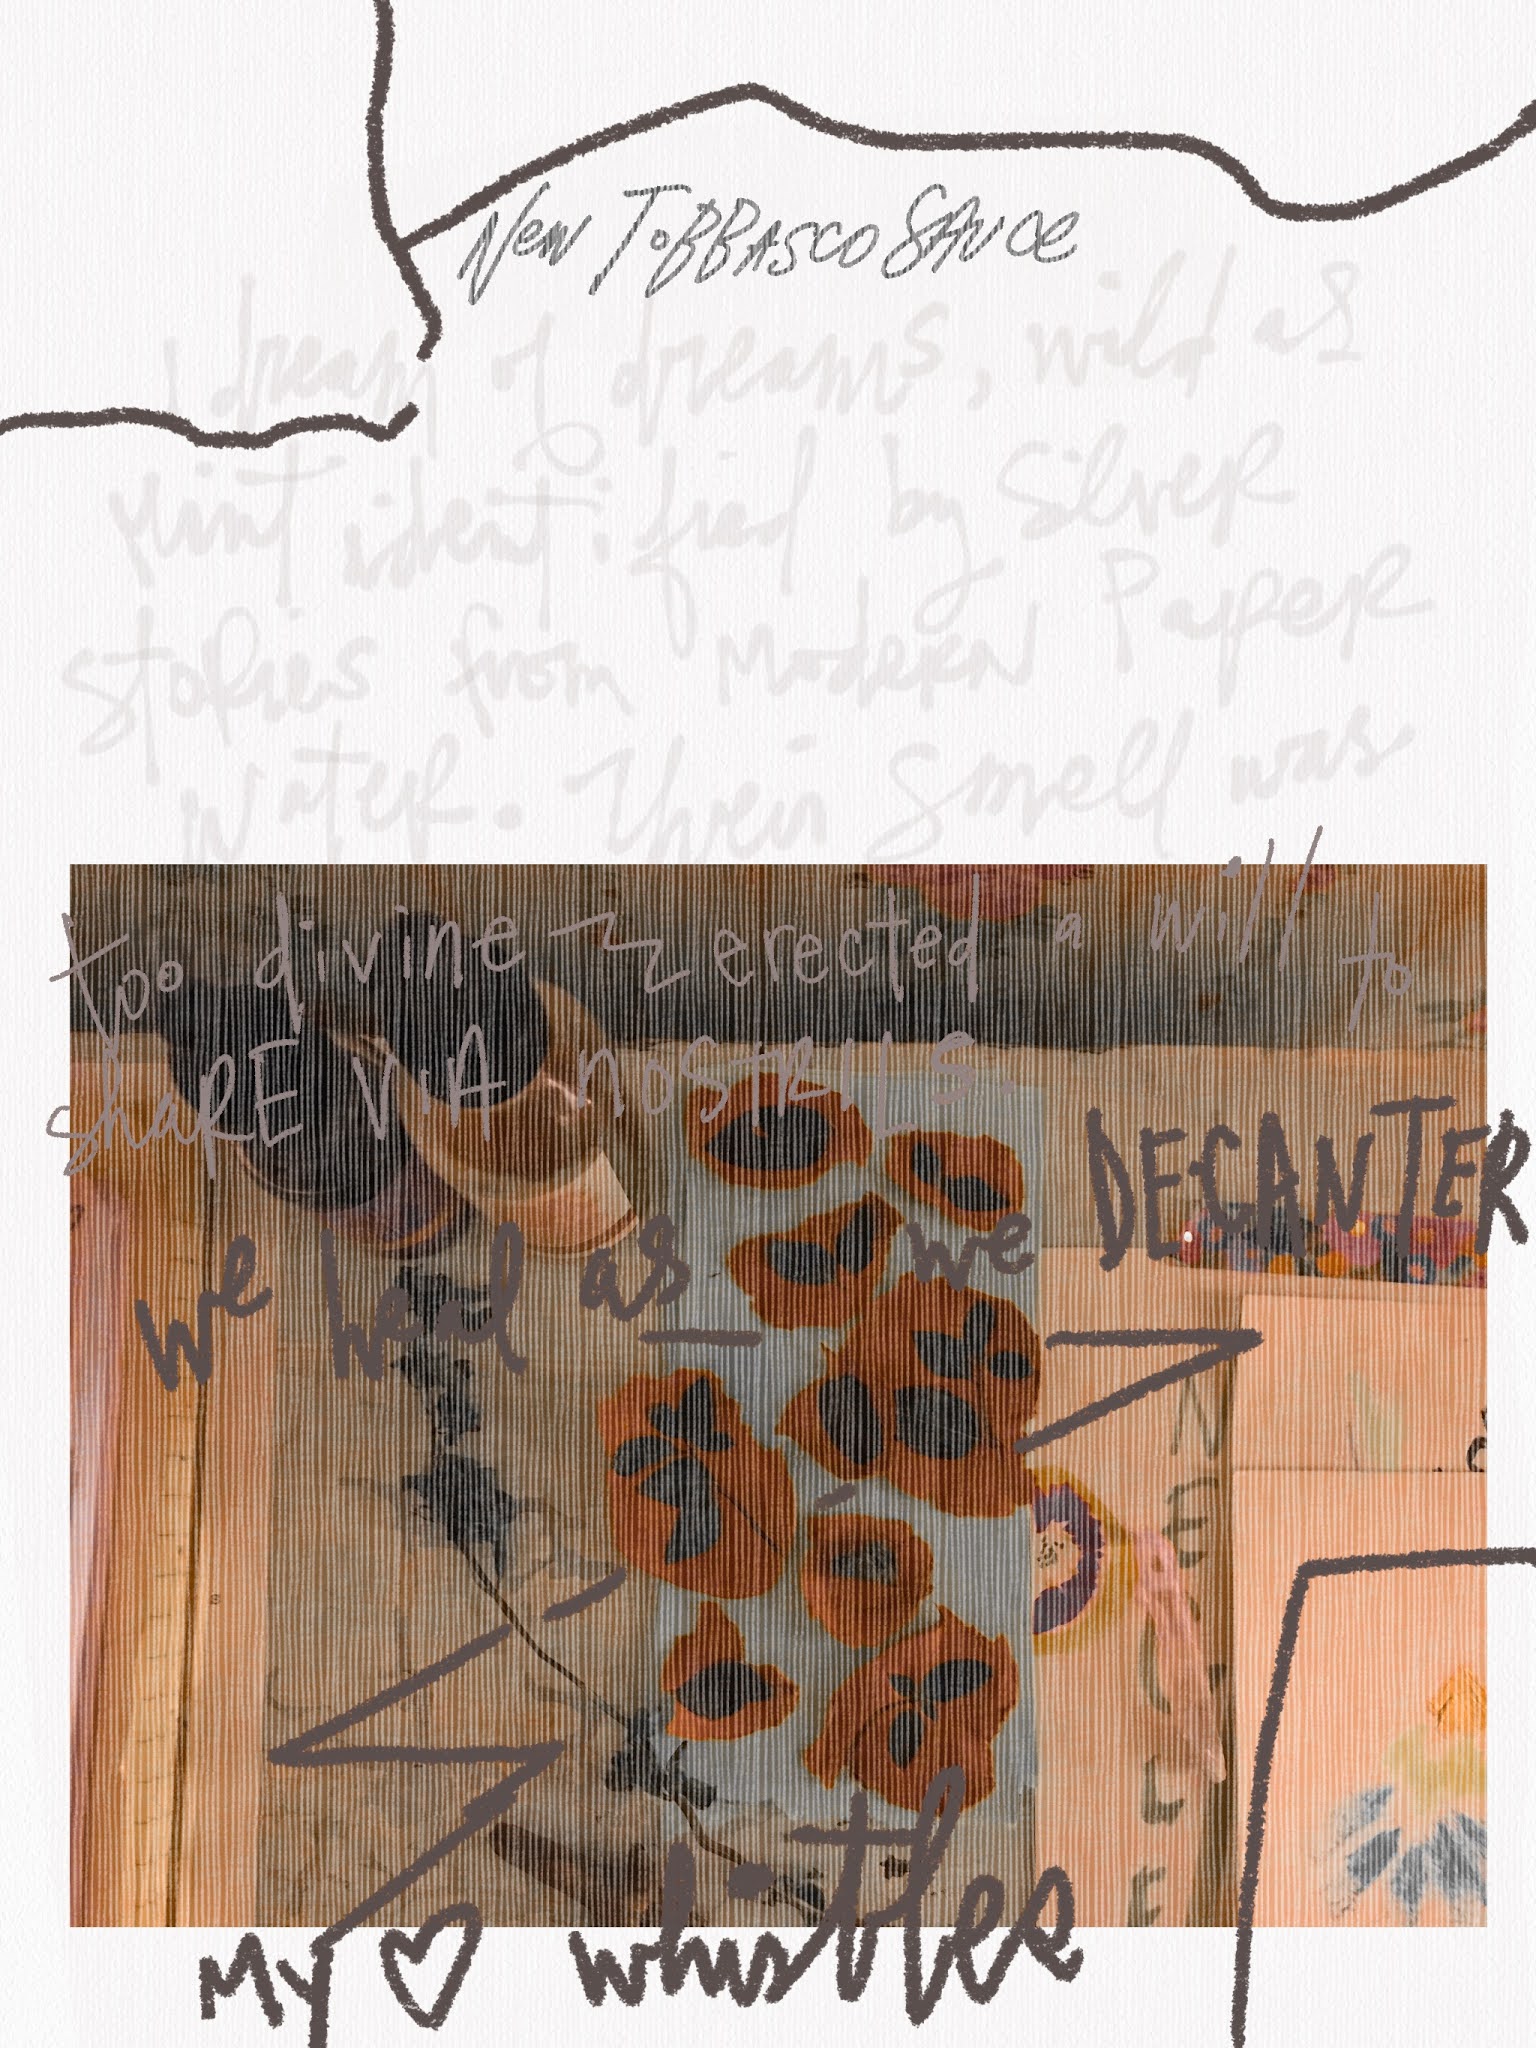 New ToBBAsco SAuce
I dream of dreams, wild as
Mint identified by Silver
Stories from Modern Paper
Water. Their Smell was
too divine erected a will to
shaRE ViA noSTRILS.
we heal as we DECANTER
My ♡ whistles